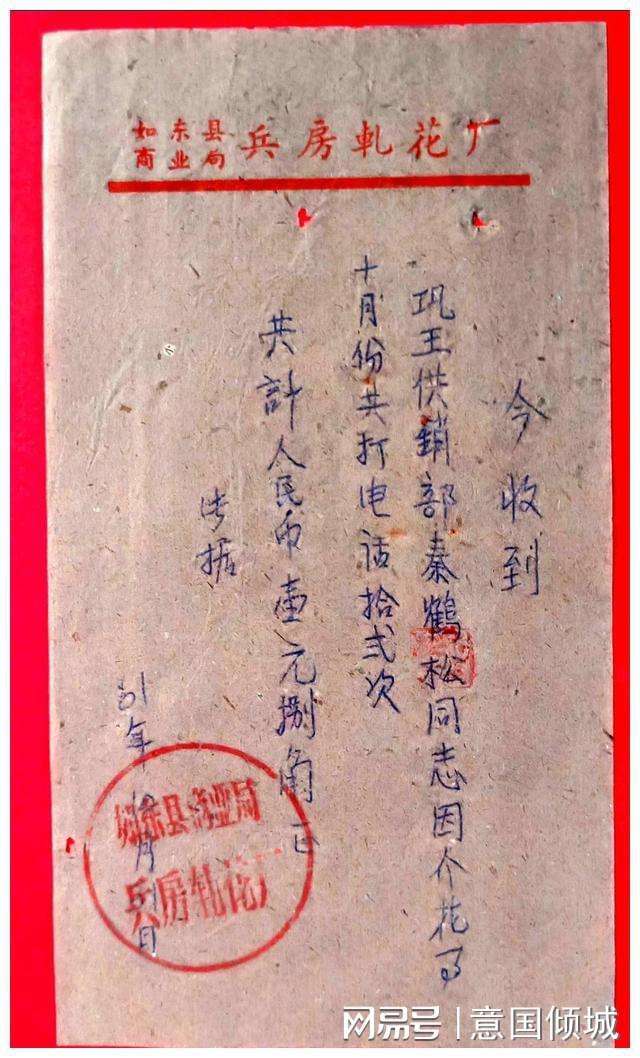 如东县
商业局 兵房轧花厂
今收到
巩王供銷部秦鶴松同志因个花
十月份共打电话拾弍次
共計人民币壹元捌角正
此据
81年10月31日
如东县商业局
兵房轧花厂
网易号 | 意国倾城